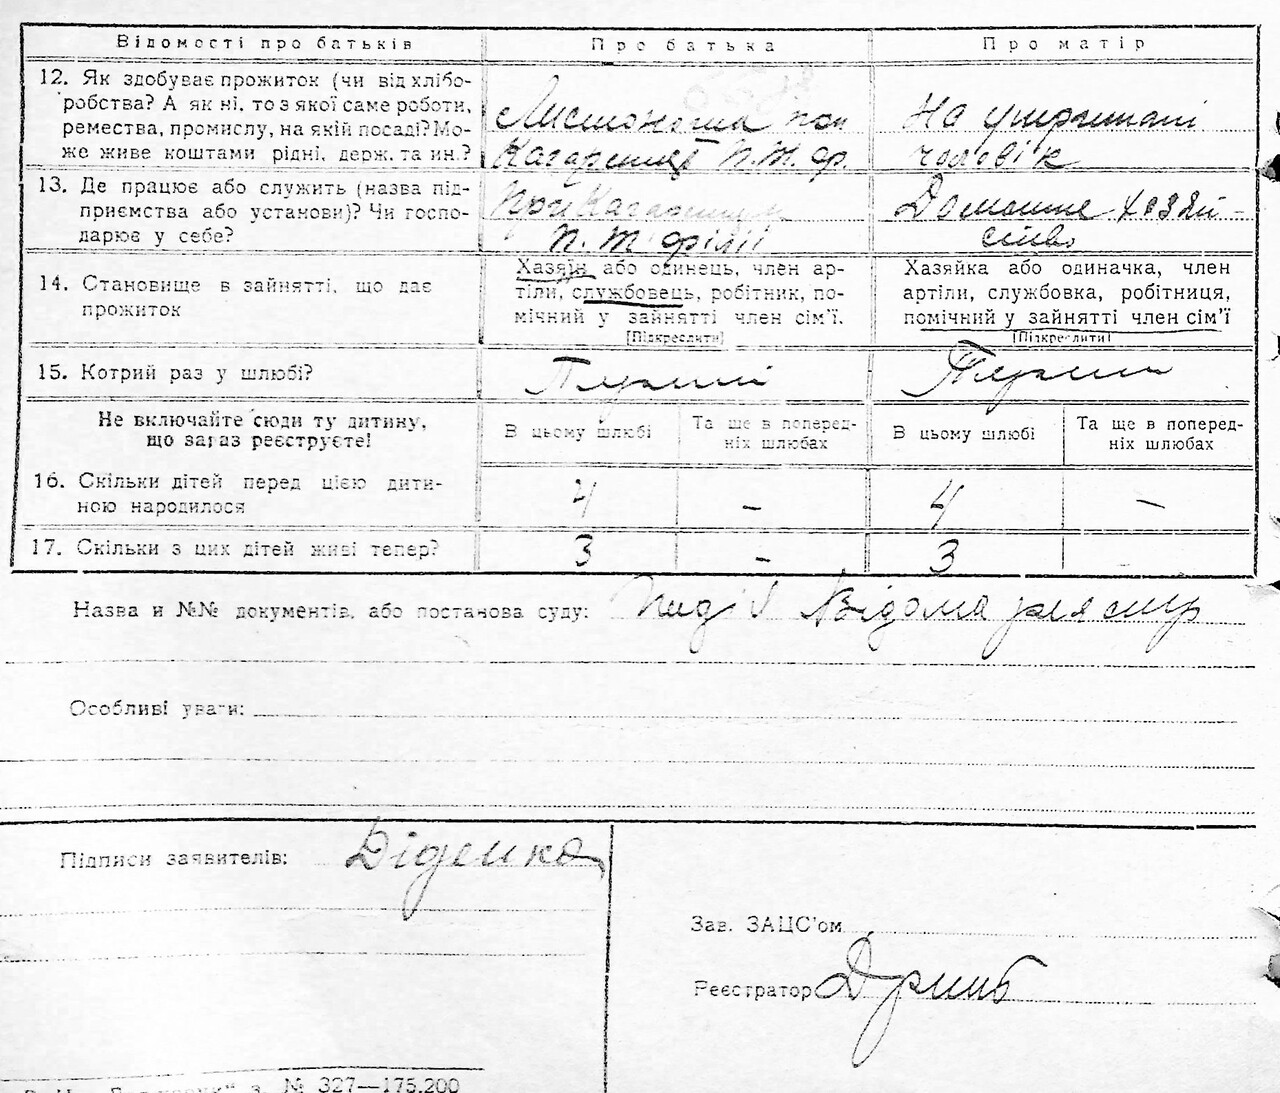 Відомості про батьків
Про батька
Про матір
12. Як здобуває прожиток (чи від хлібо-
робства? А як ні, то з якої саме роботи,
ремества, промислу, на якій посаді? Мо-
же живе коштами рідні, держ. та ин.?
Листоноша при
Кагарлицк П.Т. Ф.
На утриманні
чоловік
13. Де працює або служить (назва під-
приємства або установи)? Чи госпо-
дарює у себе?
При Кагарлицк
П. Т філії
Домашне хозяй-
ство
14. Становище в зайнятті, що дає
прожиток
Хазяїн або одинець, член ар-
тіли, службовець, робітник, по-
мічний у зайнятті член сім'ї.
[Підкреслити]
Хазяйка або одиначка, член
артіли, службовка, робітниця,
помічний у зайнятті член сім'ї
[Підкреслити]
15. Котрий раз у шлюбі?
Перший
Перший
Не включайте сюди ту дитину,
що зараз реєструєте!
В цьому шлюбі
Та ще в поперед-
ніх шлюбах
В цьому шлюбі
Та ще в поперед-
ніх шлюбах
16. Скільки дітей перед цією дити-
ною народилося
4
–
4
–
17. Скільки з цих дітей живі тепер?
3
–
3
Назва и №№ документів, або постанова суду:
Особливі уваги:
Підписи заявителів: Діденко
Зав. ЗАЦС'ом
Реєстратор
з. № 327—175.200